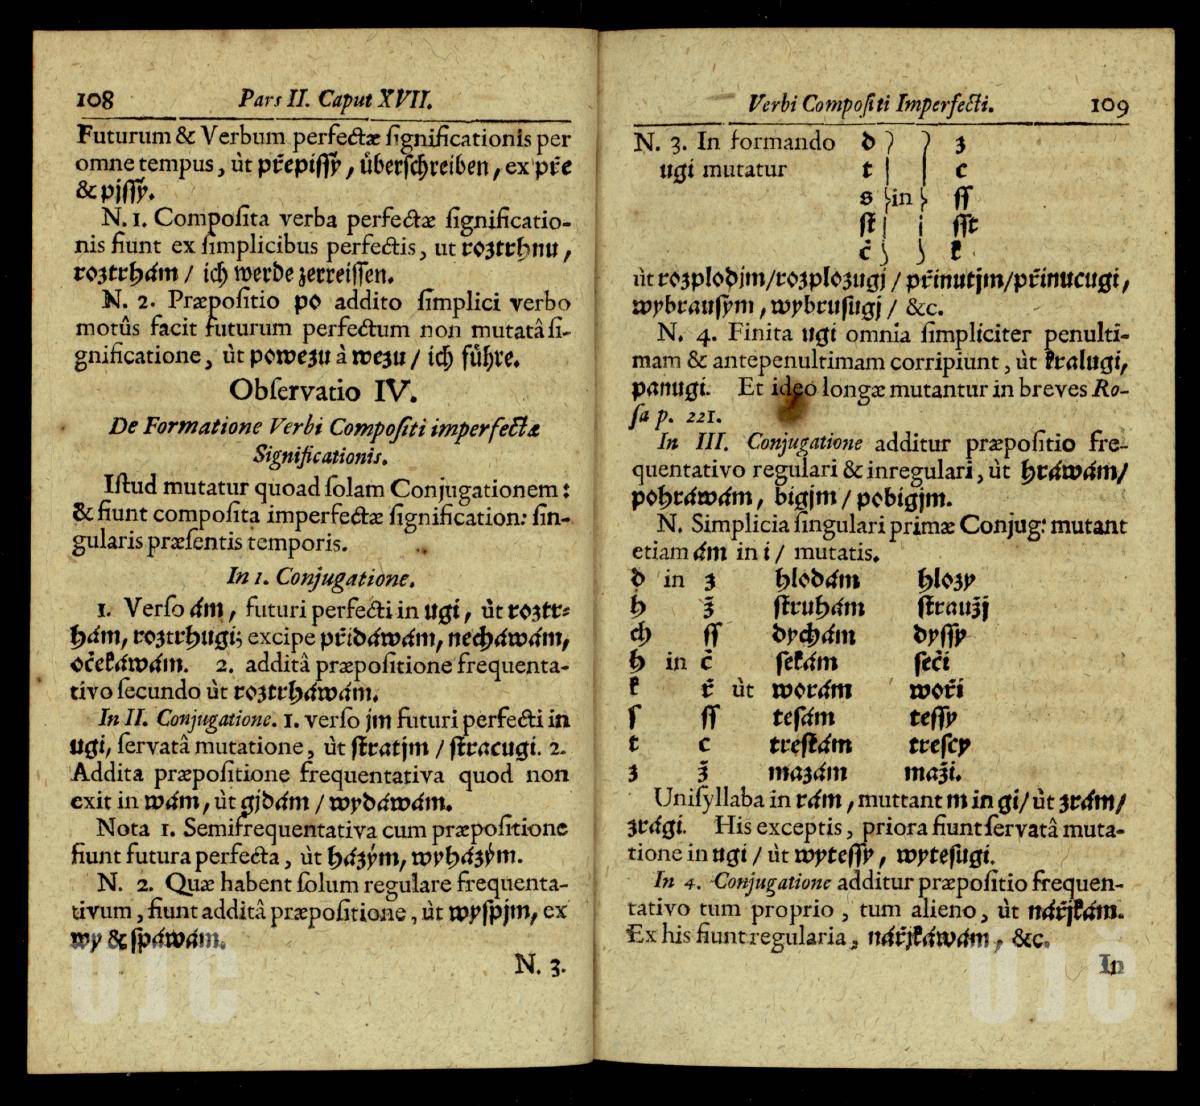 108 Pars II. Caput XVII.
Futurum & Verbum perfectæ ſignificationis per
omne tempus, ùt přepiſſy̆, ůberſchreiben, ex pře
& pjſſy̆.
N. 1. Compoſita verba perfectæ ſignificatio-
nis fiunt ex ſimplicibus perfectis, ut roztrhnu,
roztrhám / ich werde zerreiſſen.
N. 2. Præpoſitio po addito ſimplici verbo
motûs facit futurum perfectum non mutatâ ſi-
gnificatione, ùt powezu à wezu / ich fůhre.
Obſervatio IV.
De Formatione Verbi Compoſiti imperfectæ
Significationis.
Iſtud mutatur quoad ſolam Conjugationem:
& fiunt compoſita imperfectæ ſignification: ſin-
gularis præſentis temporis.
In 1. Conjugatione.
1. Verſo ám, futuri perfecti in ugi, ùt roztr-
hám, roztrhugi; excipe přidáwám, necháwám,
očekáwám. 2. additâ præpoſitione frequenta-
tivo ſecundo ùt roztrháwám.
In II. Conjugatione. 1. verſo jm futuri perfecti in
ugi, ſervatâ mutatione, ùt ſtratjm / ſtracugi. 2.
Addita præpoſitione frequentativa quod non
exit in wám, ùt gjdám / wydáwám.
Nota 1. Semifrequentativa cum præpoſitione
fiunt futura perfecta, ùt házým, wyházým.
N. 2. Quæ habent ſolum regulare frequenta-
tivum, fiunt additâ præpoſitione, ùt wyſpjm, ex
wy & ſpáwám.
N. 3.
Verbi Compoſiti Imperfecti. 109
N. 3. In formando d } } z
ugi mutatur t c
s } in } ſſ
ſt ſſt
č } } k
ùt rozplodjm/rozplozugj / přinutjm/přinucugi,
wybrauſým, wybruſugj / &c.
N. 4. Finita ugi omnia ſimpliciter penulti-
mam & antepenultimam corripiunt, ùt kralugi,
panugi. Et ideo longæ mutantur in breves Ro-
ſa p. 221.
In III. Conjugatione additur præpoſitio fre-
quentativo regulari & inregulari, ùt hráwám/
pohráwám, bigjm / pobigjm.
N. Simplicia ſingulari primæ Conjug: mutant
etiam ám in i / mutatis.
d in z hlodám hlozy
h ž ſtruhám ſtraužj
ch ſſ dychám dyſſy
h in č ſekám ſeči
k ř ùt worám woři
ſ ſſ teſám teſſy
t c treſtám treſcy
z ž mazám maži.
Uniſyllaba in rám, muttant m in gi/ ùt zrám/
zrági. His exceptis, priora fiunt ſervatâ muta-
tione in ugi / ùt wyteſſy, wyteſugi.
In 4. Conjugatione additur præpoſitio frequen-
tativo tum proprio, tum alieno, ùt nářjkám.
Ex his fiunt regularia, nářjkáwám, &c.
In